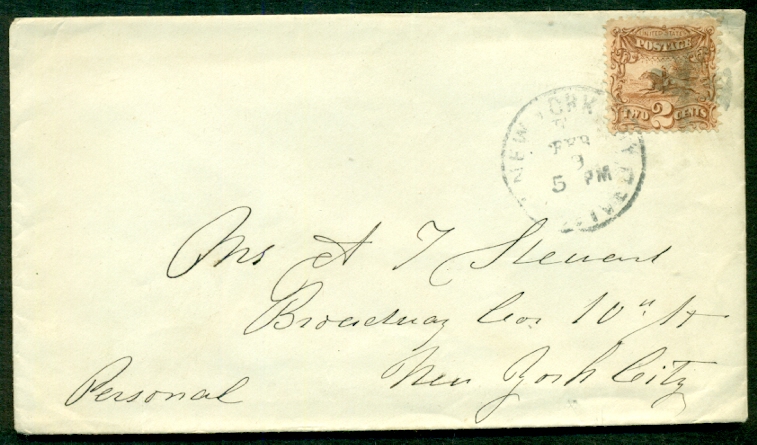 UNITED STATES
POSTAGE
TWO 2 CENTS
NEW YORK CITY
FEB
9
5 PM
Mrs A T Stewart
Broadway Cor 10th St
New York City
Personal